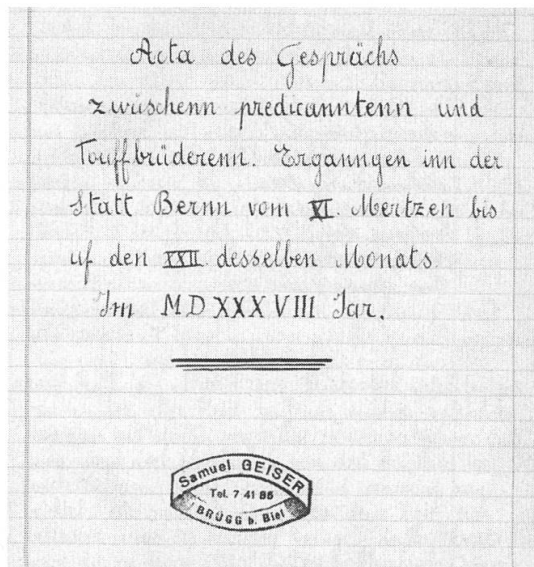 Acta des Gesprächs
zwüschenn predicanntenn und
Touffbrüderenn. Erganngen inn der
Statt Bernn vom VI. Mertzen bis
uf den XXII. desselben Monats.
Im MDXXXVIII Jar.
Samuel GEISER
Tel. 7 41 85
BRÜGG b. Biel